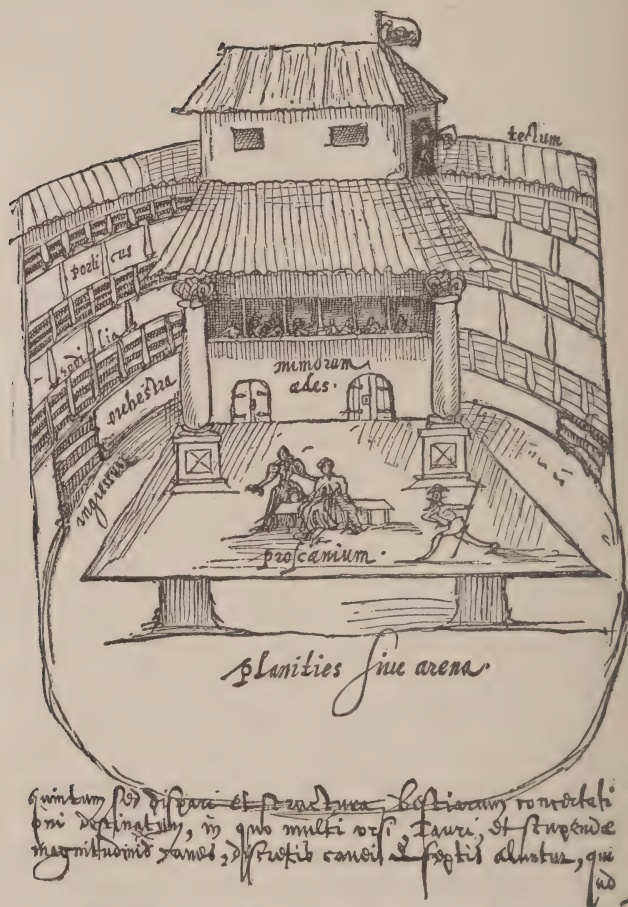 tectum
porticus
sedilia
orchestra
mimorum
ædes·
ingressus
proscænium·
planities siue arena·
quintum sed dispari et structura, bestiarum concertati
oni destinatum, in quo multi vrsi, Tauri, et stupendæ
magnitudinis canes, discretis caueis & septis aluntur, qui
ad